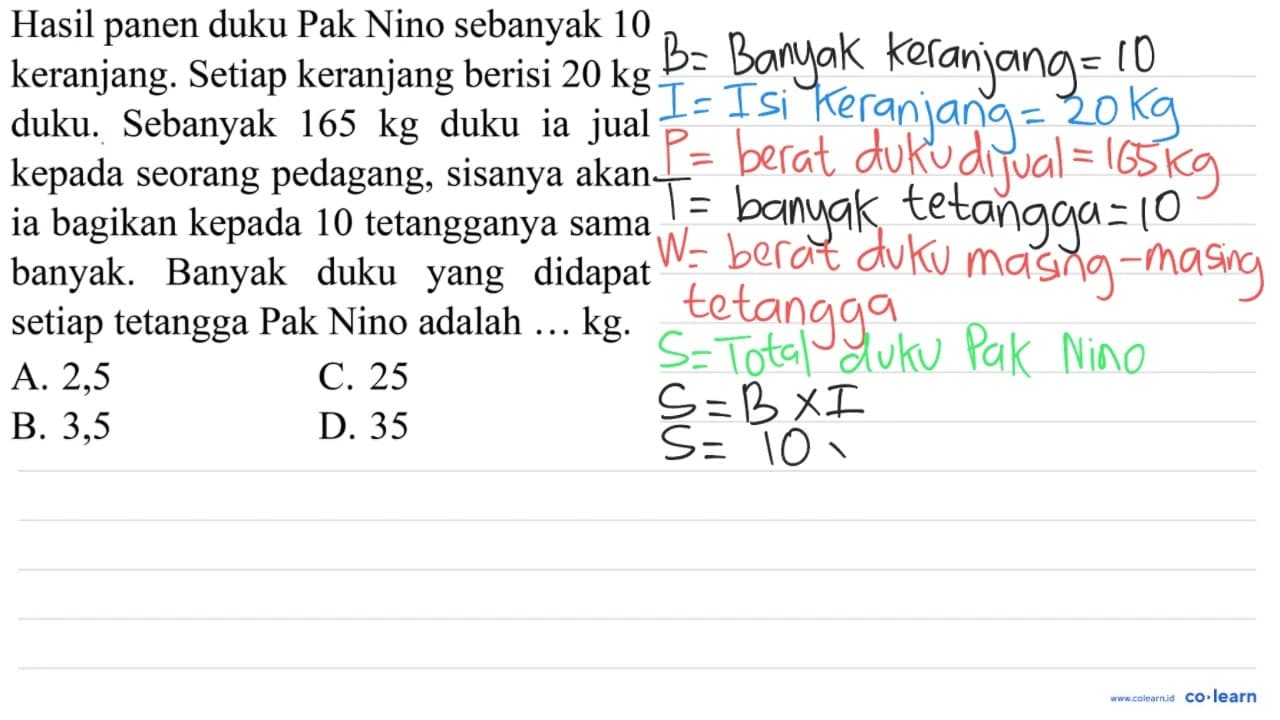 Hasil panen duku Pak Nino sebanyak 10
keranjang. Setiap keranjang berisi 20 kg
duku. Sebanyak 165 kg duku ia jual
kepada seorang pedagang, sisanya akan
ia bagikan kepada 10 tetangganya sama
banyak. Banyak duku yang didapat
setiap tetangga Pak Nino adalah ... kg.
A. 2,5 C. 25
B. 3,5 D. 35
B= Banyak keranjang = 10
I= Isi keranjang = 20 kg
P= berat duku dijual = 165 kg
T= banyak tetangga = 10
W= berat duku masing-masing
tetangga
S= Total duku Pak Nino
S = B x I
S = 10
www.colearn.id co·learn